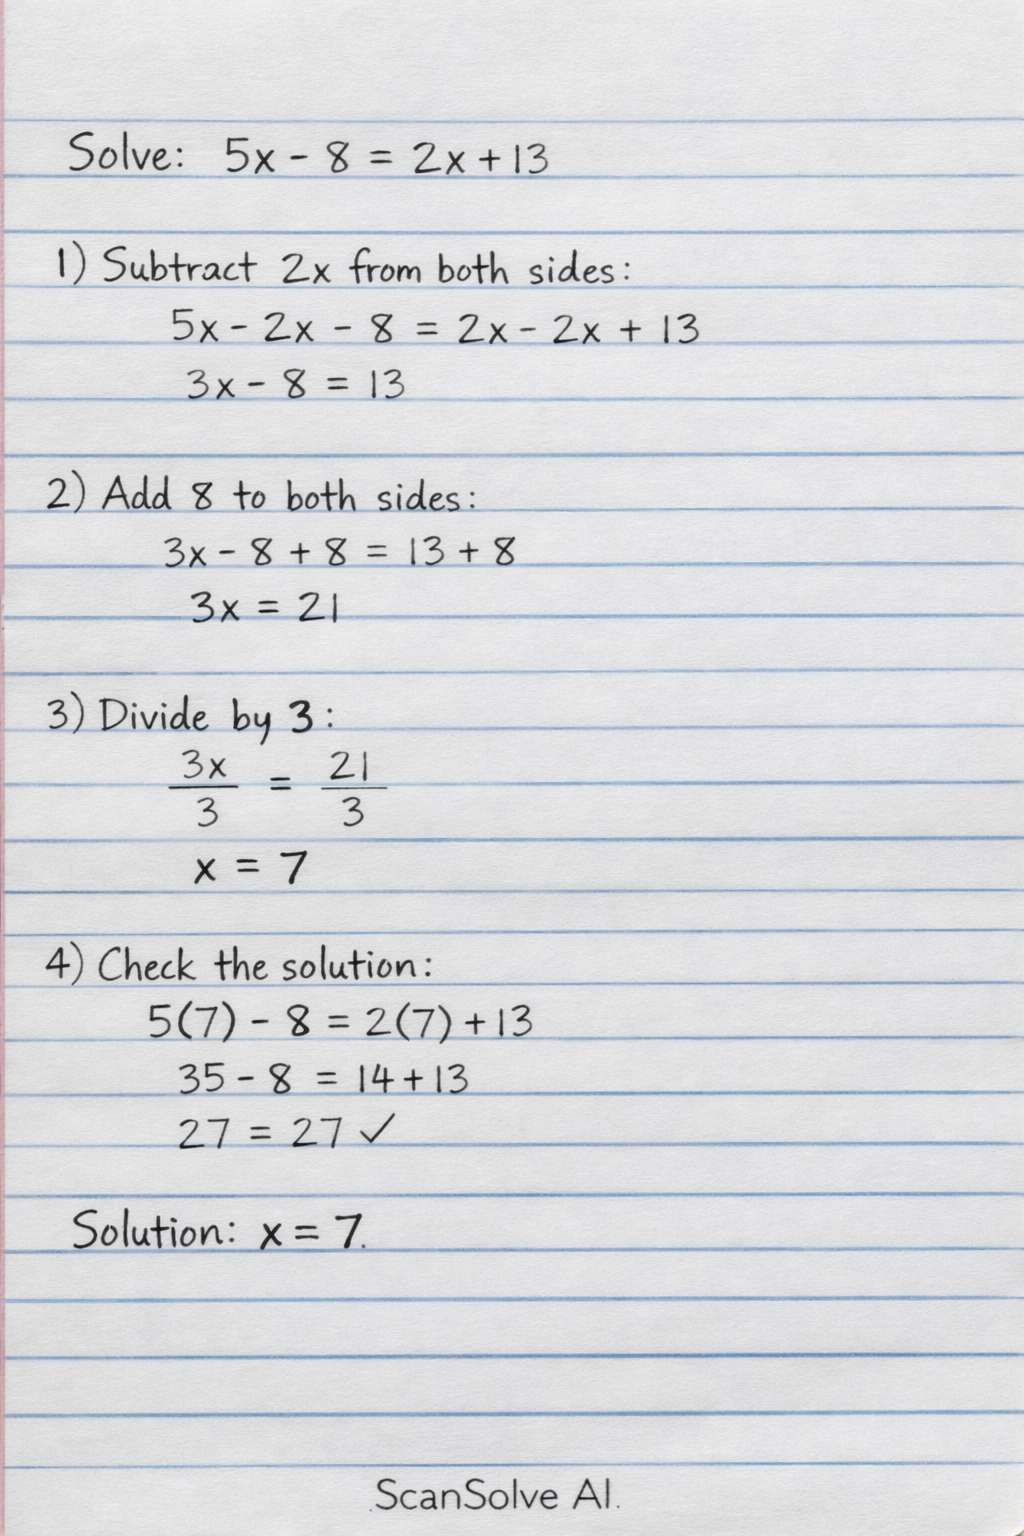 Solve: 5x - 8 = 2x + 13
1) Subtract 2x from both sides:
5x - 2x - 8 = 2x - 2x + 13
3x - 8 = 13
2) Add 8 to both sides:
3x - 8 + 8 = 13 + 8
3x = 21
3) Divide by 3:
3x/3 = 21/3
x = 7
4) Check the solution:
5(7) - 8 = 2(7) + 13
35 - 8 = 14 + 13
27 = 27 ✓
Solution: x = 7.
ScanSolve AI.